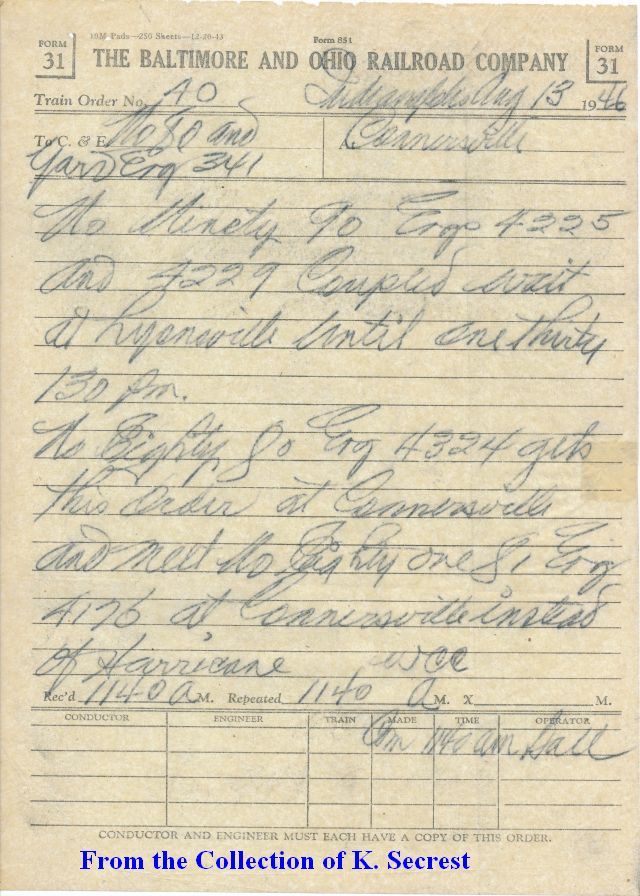 10M Pads—250 Sheets—12-20-43
Form 851
FORM 31
FORM 31
THE BALTIMORE AND OHIO RAILROAD COMPANY
Train Order No. 40 Indianapolis Aug 13 1946
To C. & E. No 80 and
Yard Eng 341
At Connersville
No Ninety 90 Engs 4225
and 4229 Coupled wait
at Lyonsville Until one thirty
130 pm.
No Eighty 80 Eng 4324 gets
this order at Connersville
and meet No Eighty one 81 Eng
4176 at Connersville instead
of Hurricane WCC
Rec'd 1140 A M. Repeated 1140 A M. X M.
CONDUCTOR ENGINEER TRAIN MADE TIME OPERATOR
Com 1140 am
CONDUCTOR AND ENGINEER MUST EACH HAVE A COPY OF THIS ORDER.
From the Collection of K. Secrest